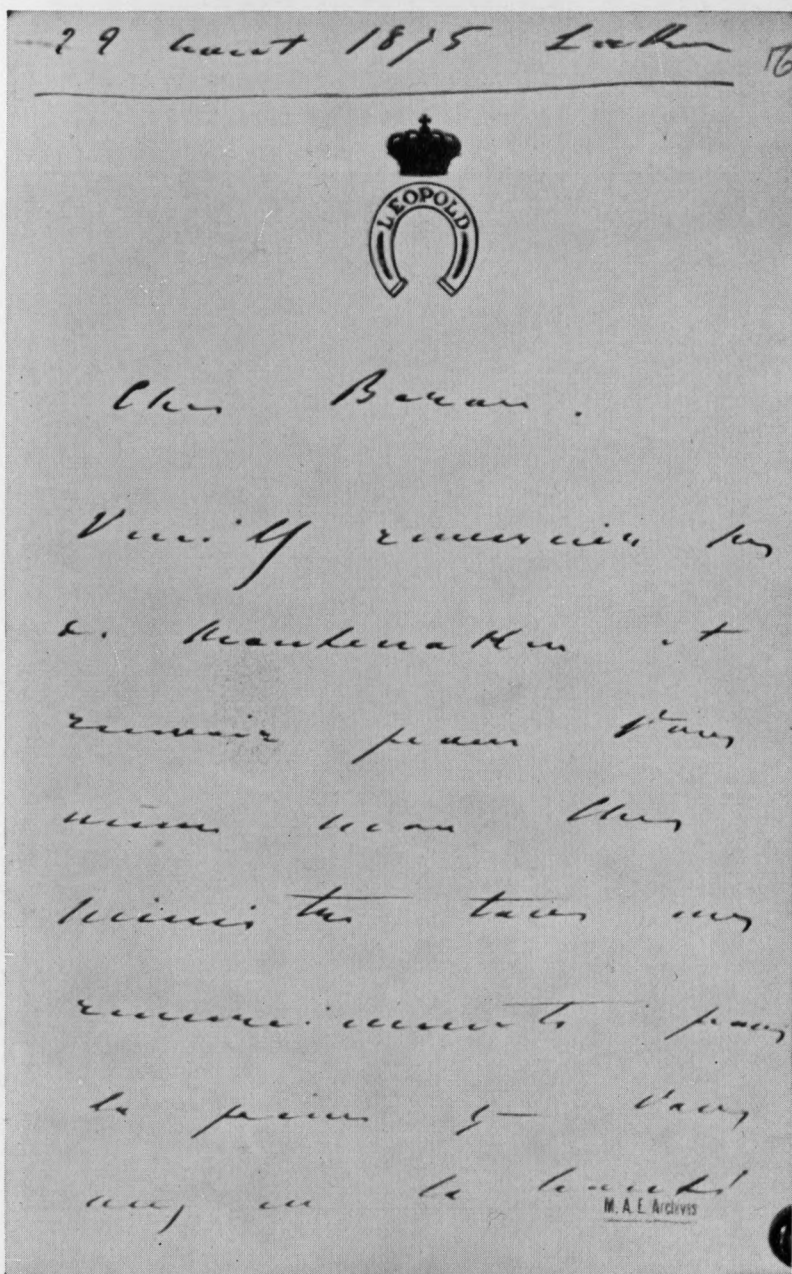 29 aout 1875 Laeken
LEOPOLD
Cher Baron.
Veuillez remercier
et
recevoir pour Vous
même mon Cher
ministre tous mes
remerciements pour
la peine q— Vous
avez eu la bonté
M. A. E. Archives